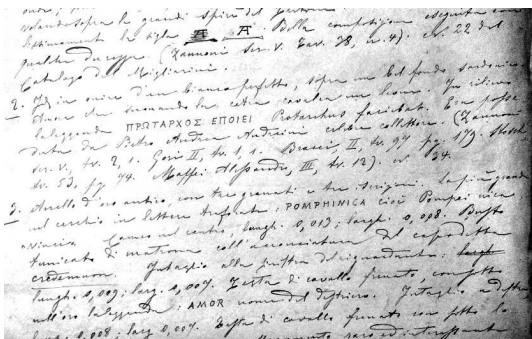 le grandi spire del
la sigla A. Bella composizione eseguita con
(Zannoni ser. V. tav. 38, n. 4). n. 22 del
Catalogo del Migliarini.
2. Id. in onice d'un bianco perfetto, sopra un bel fondo sardonico
Amore che suonando la cetra cavalca un leone. In rilievo
la leggenda ΠΡΩΤΑΡΧΟΣ ΕΠΟΙΕΙ Protarchus faciebat. Era posse
duta da Pietro Andrea Andreini celebre collettore. (Zannoni
ser. V, tv. 2, 1. Gori II, tv. 1, 1. Bracci, II, tv. 97 pg. 179. Stosch
tv. 53, pg. 74. Maffei Alessandro, III, tv. 12). n° 34.
3. Anello d'oro antico, con tre granati e tre castoni. La più grande
nel cerchio in lettere traforate: POMPHINICA cioè Pompei nica
Cameo nel centro, lungh. 0,013; largh. 0,008. Busto
tunicato di matrona coll'acconciatura del capo detta
credemnon. Intaglio alla destra del riguardante: largh
lungh. 0,009; larg. 0,007. Testa di cavallo frenato, con sotto
nell'oro la leggenda: AMOR nome del destriero. Intaglio
0,008; larg. 0,007. Testa di cavallo frenato con sotto la
raro ed interessante